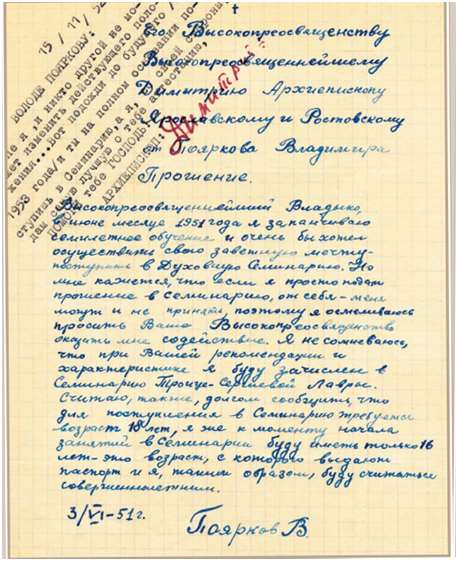 15/11/52
ВОЛОДЕ ПОЯРКОВУ:
я и никто другой не мо-
жет изменить действующего поло-
жения...Вот подожди до будущего /
1953 года/и ты на полном основании по-
ступишь в Семинарию, а я, с своей стороны
дам самую лучшую о тебе
тебе ГОСПОДЬ
АРХИЕПИСКОП:
Димитрий.
Его Высокопреосвященству
Высокопреосвященнейшему
Димитрию Архиепископу
Ярославскому и Ростовскому
от Пояркова Владимира
Прошение.
Высокопреосвященнейший Владыко,
в июне месяце 1951 года я заканчиваю
семилетнее обучение и очень бы хотел
осуществить свою заветную мечту-
поступить в Духовную Семинарию. Но
мне кажется, что если я просто подам
прошение в семинарию, от себя - меня
могут и не принять, поэтому я осмеливаюсь
просить Ваше Высокопреосвященство
оказать мне содействие. Я не сомневаюсь,
что при Вашей рекомендации и
характеристике я буду зачислен в
Семинарию Троице-Сергиевой Лавры.
Считаю, также, долгом сообщить, что
для поступления в Семинарию требуется
возраст 18 лет, я же к моменту начала
занятий в Семинарии буду иметь только 16
лет-это возраст, с которого выдают
паспорт и я, таким образом, буду считаться
совершеннолетним.
3/VI-51г.
Поярков В.